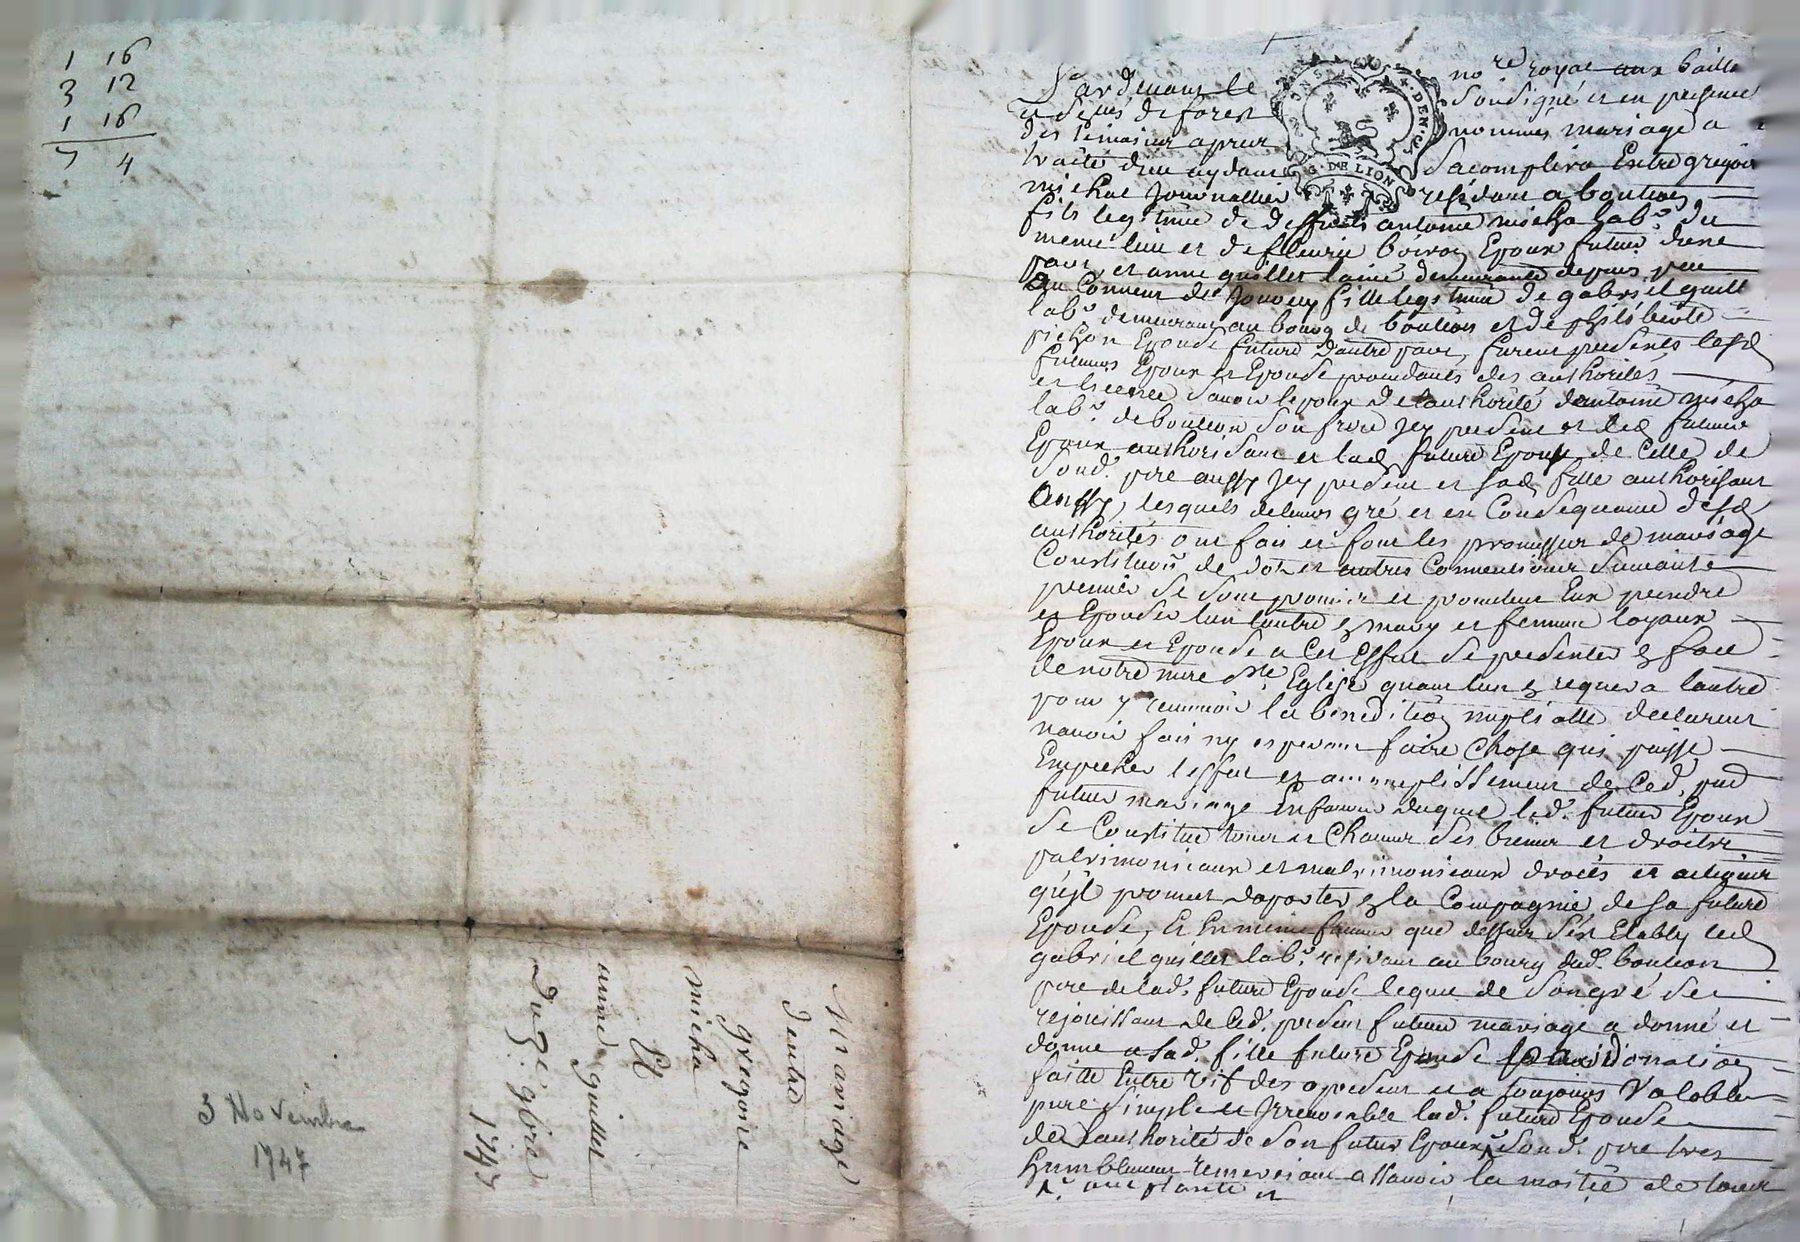 1 16
3 12
1 16
7 4
Mariage
dentre
gregoire
micha
Et
anne quillet
Du 3e 9bre
1747
3 Novembre
1747
G. DE LION
Pardevant le no.re royal aux baill
des de forest Soussigné et en presence
des temoins apres nommés mariage a
traitté dieu aydant Sacomplira Entre gregoire
michat Journallier residant a boutteon
fils legitime de deffunts antoine micha lab.r du
meme lieu et de fleurie Epoux futur dune
part, et anne quillet demeurante depuis peu
au Couvent de Jourcey fille legitime de gabriel quill
lab.r demeurant au bourg de boutteon et de philiberte
pichon Epouse future dautre part, furent presents lesd
futeurs Epoux et Epouse procedants des authorités
et licence Savoir lepoux de lauthorité dantoine micha
lab.r de boutteon Son frere Jcy present et led futeur
Epoux authorisant et lad future Epouse de Celle de
Sond. pere aussy Jcy present et Sad fille authorisant
aussy, lesquels de leurs gré et en Consequance desd
authorités ont fait et font les promesses de mariage
Constituon de dot et autres Conventions Suivante
premier Se Sont promis et promettent Eux prendre
et Epouser lun lautre en mary et femme loyaux
Epoux et Epouse a Cet Effet Se presenter en face
de notre mere Ste Eglise quant lun en requera lautre
pour y recevoir la benediction nuptialle declarent
navoir fait ny esperant faire Chose qui puisse
Empecher leffet et accomplissement de Ced. pnt
futur mariage En faveur duquel led. futur Epoux
Se Constitue tous et Chacuns Ses biens et droits
patrimoniaux et matrimoniaux droits et actions
quil promet daporter en la Compagnie de Sa future
Epouse, Et En meme faveur que dessus Sest Etably led
gabriel quillet lab.r residant au bourg dud. boutteon
pere de lad. future Epouse lequel de Son gré Se
rejouissant de Ced. present futeur mariage a donné et
donne a Sad. fille future Epouse donation
faitte Entre vif des a present et a toujours Valable
pure Simple et Jrrevocable lad. future Epouse
de lauthorité de Son futur Epoux Sond. pere tres
humblement remerciant assavoir la moitié de tous